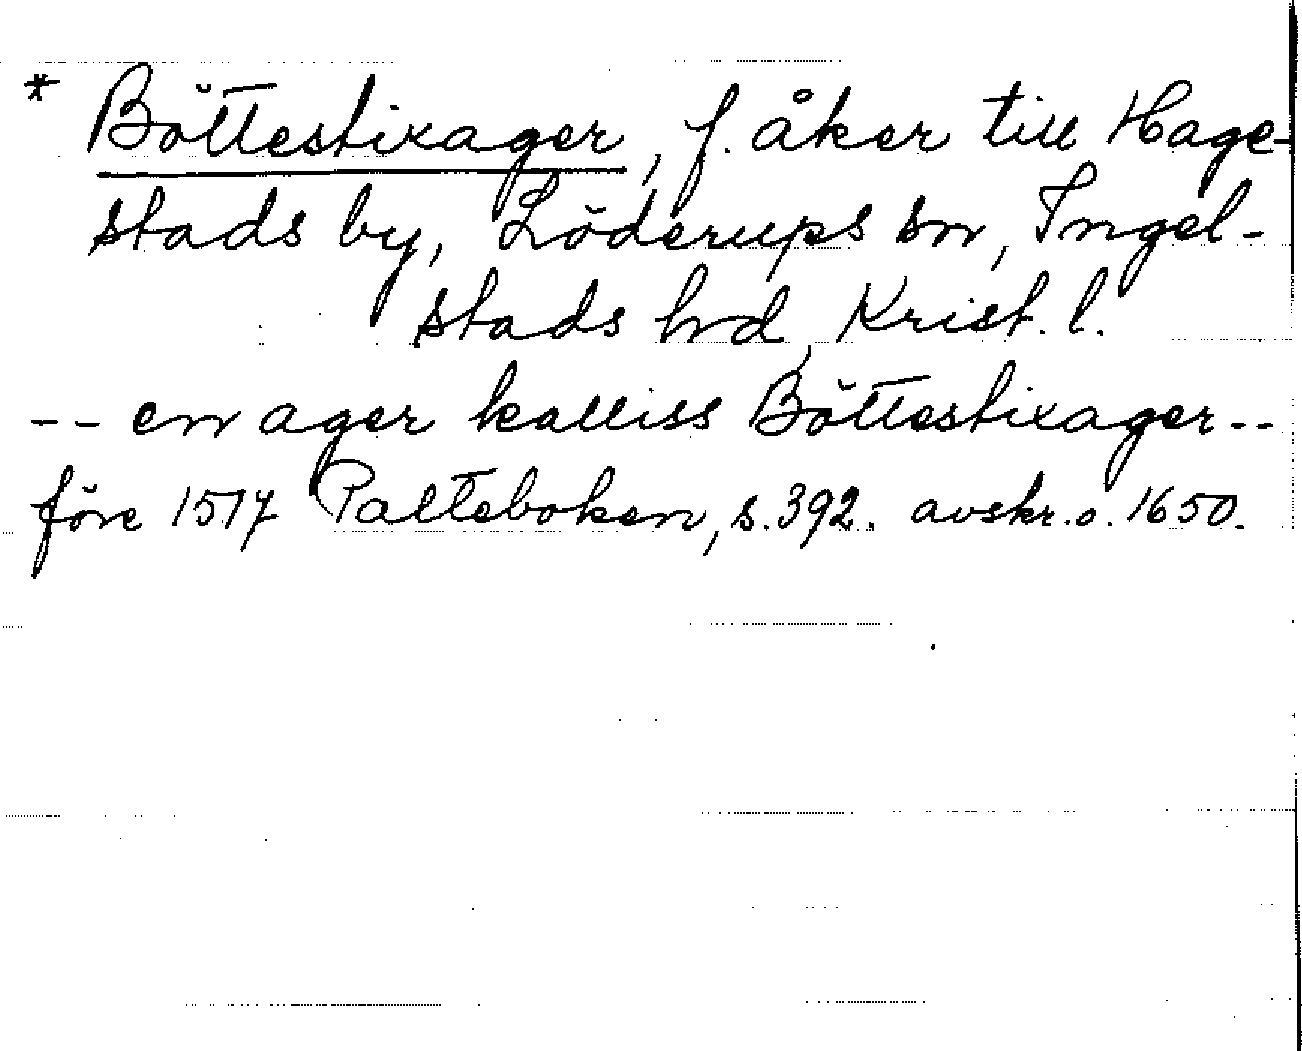 * Böttestixager, f. åker till Hage-
stads by, Löderups sn, Ingel-
stads hd, Krist. l.
-- en ager kalliss Böttestixager --
före 1517 Palteboken, s. 392. avskr. o. 1650.